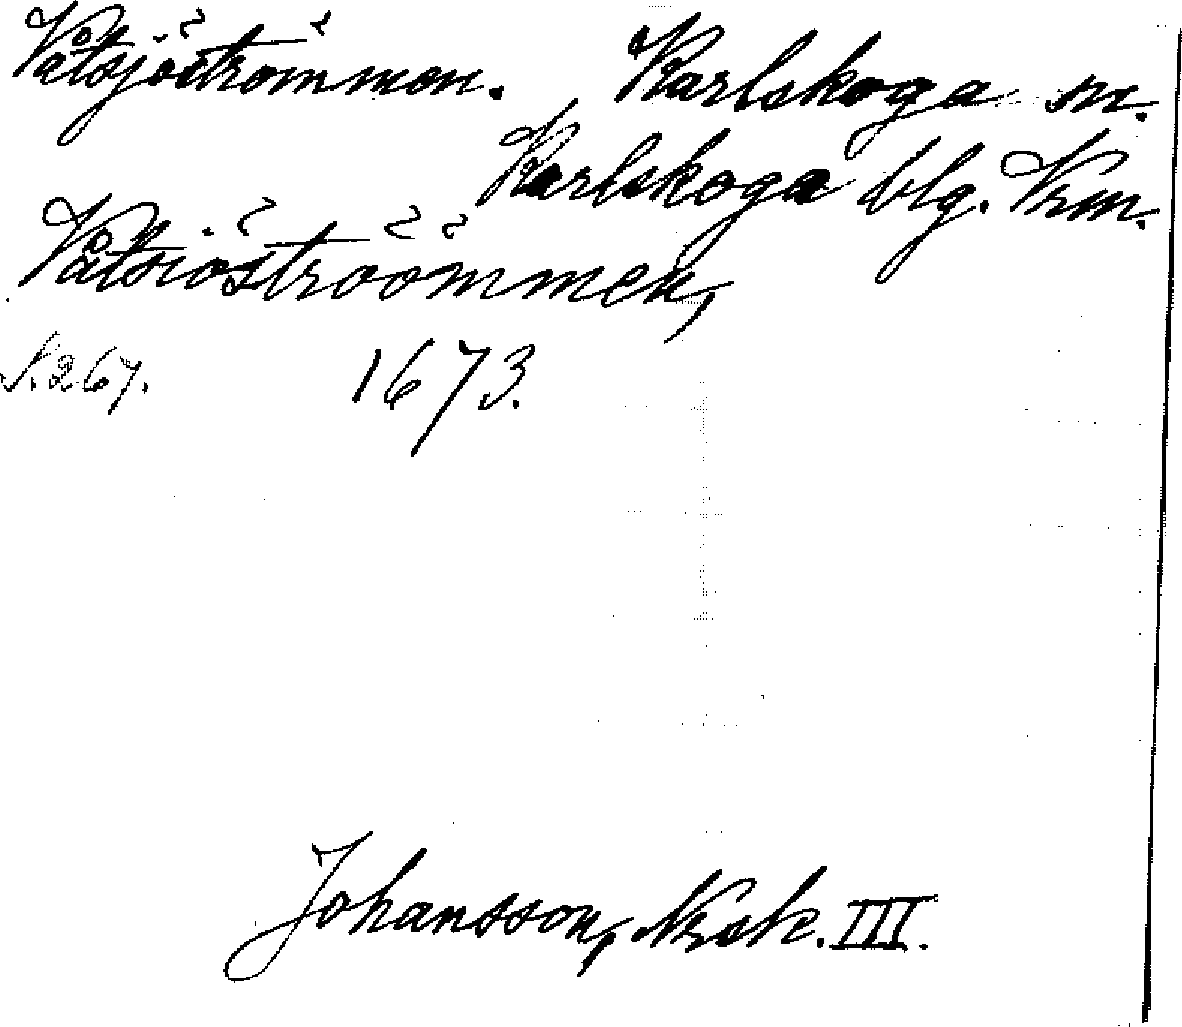 Våtsjöströmmen. Karlskoga sn.
Karlskoga blg. Vrm.
Våtsiöströömmen,
S. 267. 1673.
Johansson, Nrsk. III.